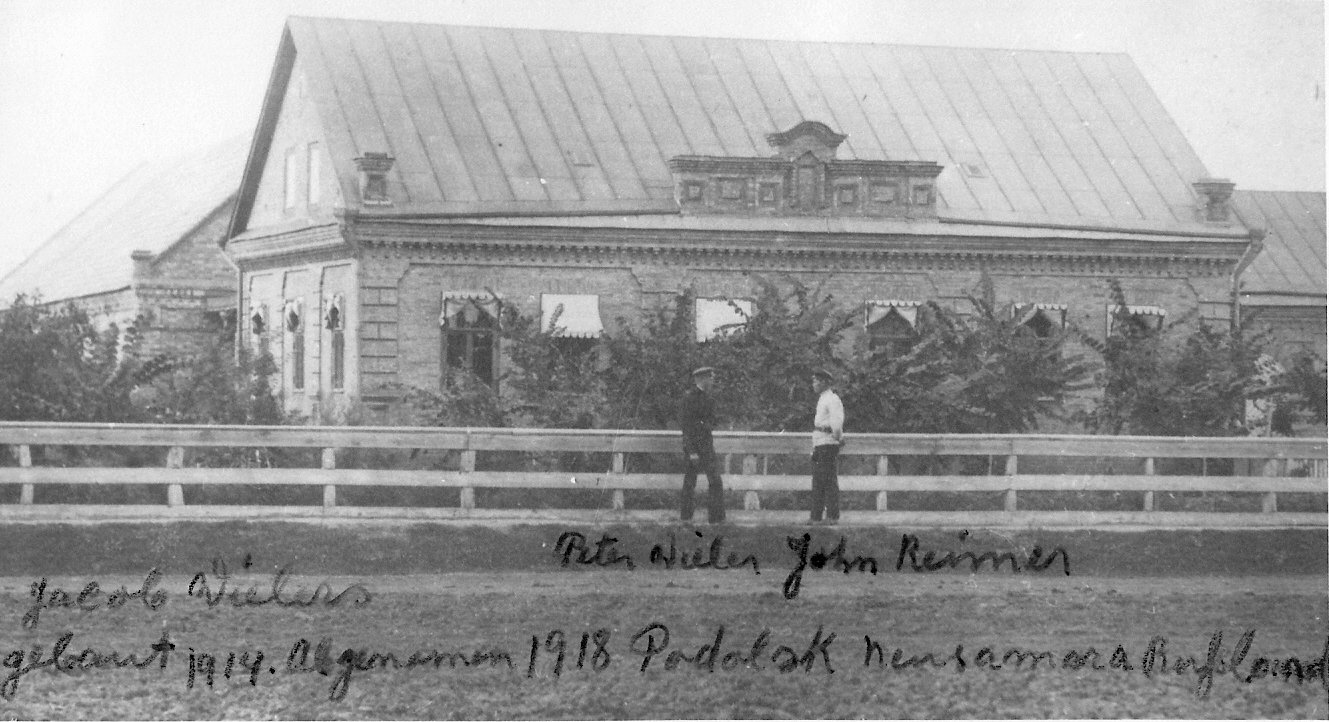 Peter Wieler John Reimer
Jacob Wielers
gebaut 1914. Abgenomen 1918 Podolsk Neusamara Rußland